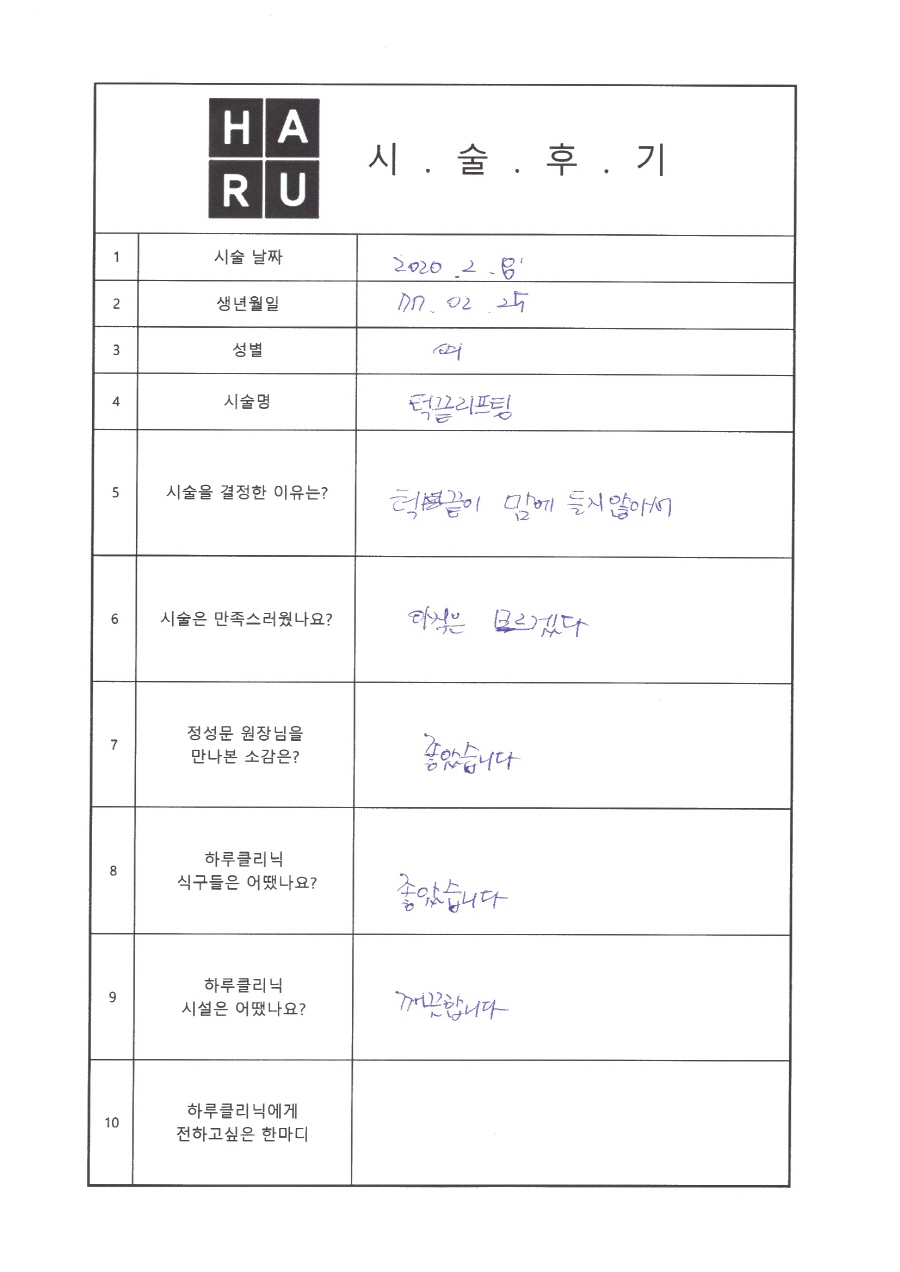 HA
RU
시 . 술 . 후 . 기
1 시술 날짜 2020 . 2 .
2 생년월일 02 . 25
3 성별 여
4 시술명 턱끝리프팅
5 시술을 결정한 이유는? 턱끝이 맘에 들지않아서
6 시술은 만족스러웠나요? 아직은 모르겠다
7 정성문 원장님을
만나본 소감은? 좋았습니다
8 하루클리닉
식구들은 어땠나요? 좋았습니다
9 하루클리닉
시설은 어땠나요? 깨끗합니다
10 하루클리닉에게
전하고싶은 한마디